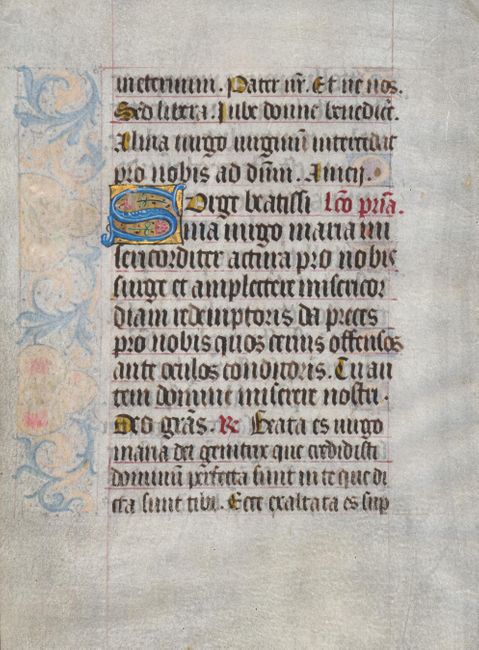 in eternum. Pater nr̄. Et ne nos.
Sed libera. Jube domne benedicē.
Alma uirgo uirginū intercedat
pro nobis ad dn̄m. Amen.
Surge beatissi Lc̄o pr̄ia.
ma uirgo maria mi
sericorditer actura pro nobis
surge et amplectere misericor
diam redemptoris da preces
pro nobis quos cernis offensos
ante oculos conditoris. Tu au
tem domine miserere nostri.
Deo grās. R̄. Beata es uirgo
maria dei genitrix que credidisti
dominum perfecta sunt in te que di
cta sunt tibi. Ecce exaltata es sup